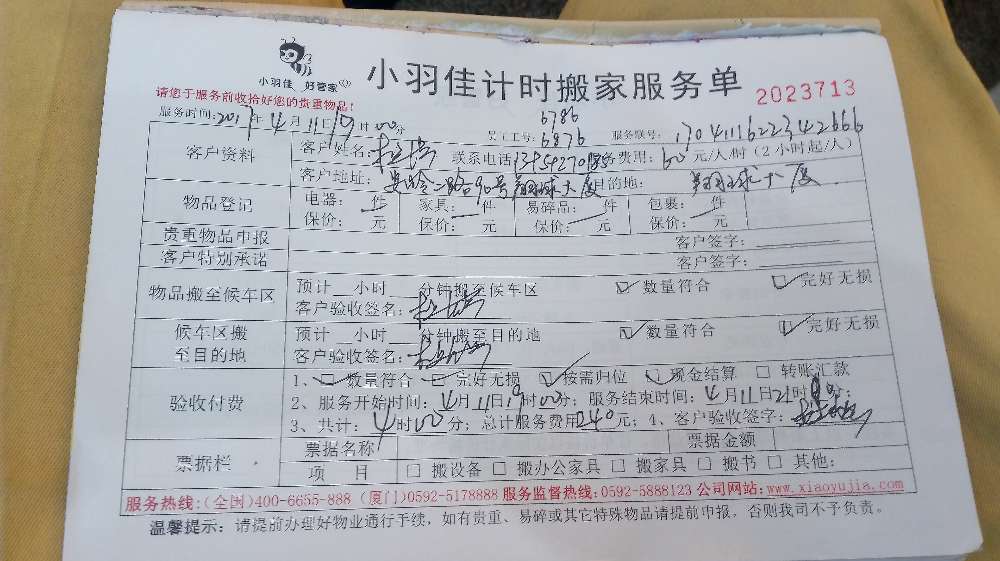 小羽佳 好管家
小羽佳计时搬家服务单
2023713
请您于服务前收拾好您的贵重物品!
服务时间:2017年4月11日19时00分
员工工号:6786 6876
服务联号:1704111622342666
客户资料
客户姓名: 联系电话 服务费用:60元/人/时(2小时起/人)
客户地址: 二路90号翔球大厦 目的地: 翔球大厦
物品登记
电器: 件 家具: 件 易碎品: 件 包裹: 件
保价: 元 保价: 元 保价: 元 保价: 元
贵重物品申报 客户签字:
客户特别承诺 客户签字:
物品搬至候车区
预计 小时 分钟搬至候车区 ☑数量符合 ☑完好无损
客户验收签名:
候车区搬至目的地
预计 小时 分钟搬至目的地 ☑数量符合 ☑完好无损
客户验收签名:
验收付费
1、☑数量符合 ☑完好无损 ☑按需归位 ☑现金结算 □转账汇款
2、服务开始时间:4月11日19时00分; 服务结束时间:4月11日21时00分;
3、共计:4时00分; 总计服务费用240元; 4、客户验收签字:
票据栏
票据名称 票据金额
项 目 □搬设备 □搬办公家具 □搬家具 □搬书 □其他:
服务热线:(全国)400-6655-888 (厦门)0592-5178888 服务监督热线:0592-5888123 公司网站:www.xiaoyujia.com
温馨提示: 请提前办理好物业通行手续, 如有贵重、易碎或其它特殊物品请提前申报, 否则我司不予负责。